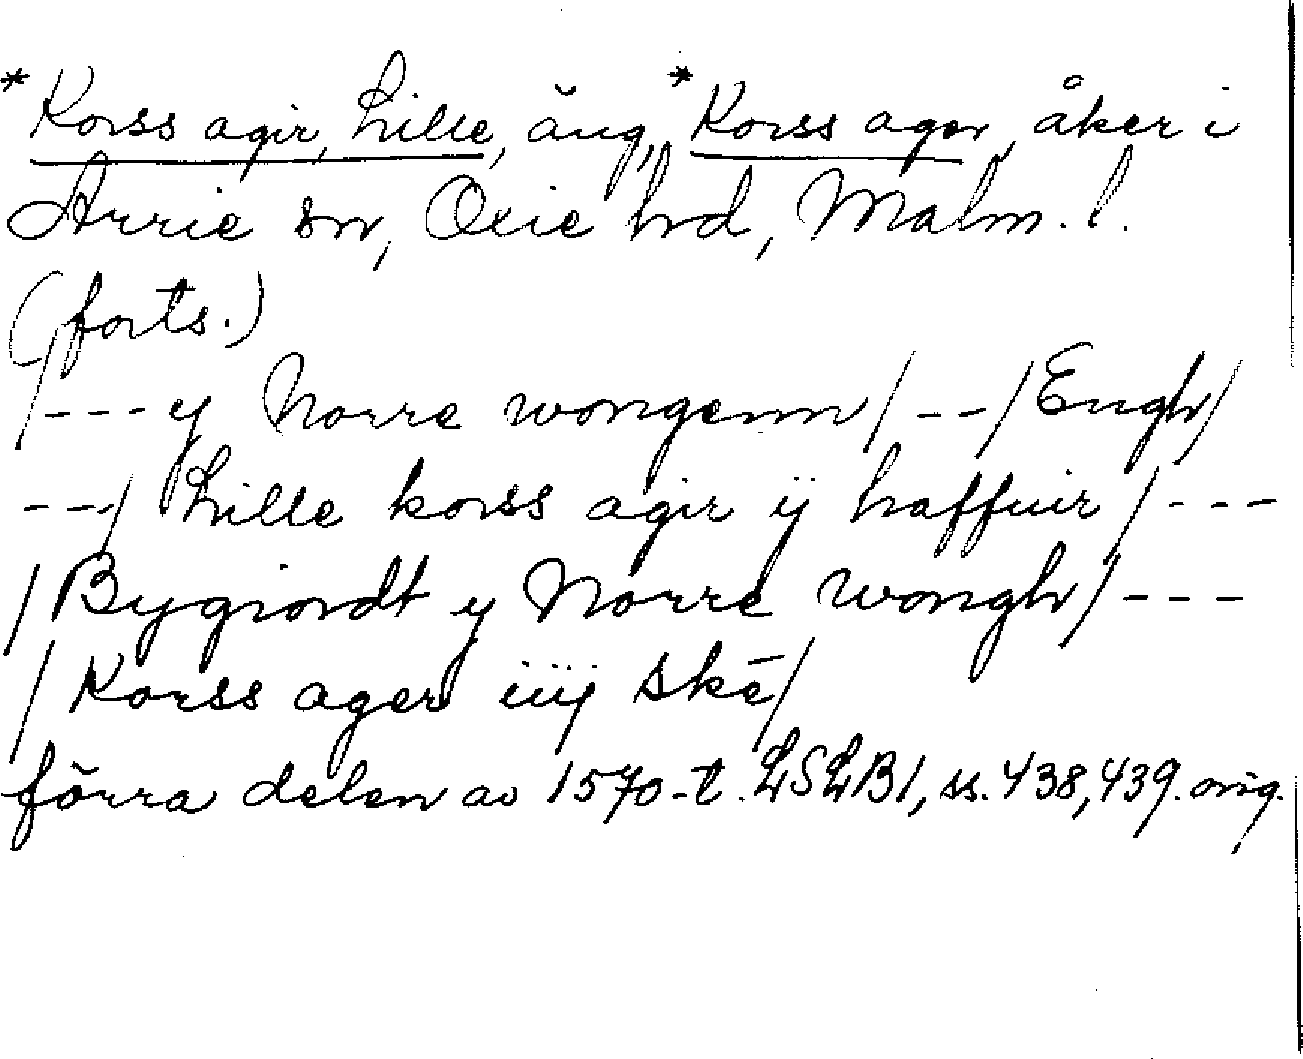 *Korss agir, Lille, äng, *Korss ager, åker i
Arrie sn, Oxie hd, Malm. l.
(forts.)
/---y Norre wongenn/--/Engh/
--/ Lille korss agir ÿ haffuir /---
/Bygiordt y Norre wongh/---
/Korss ager iiij skē/
förra delen av 1570-t. LSLB1, ss. 438,439. orig.